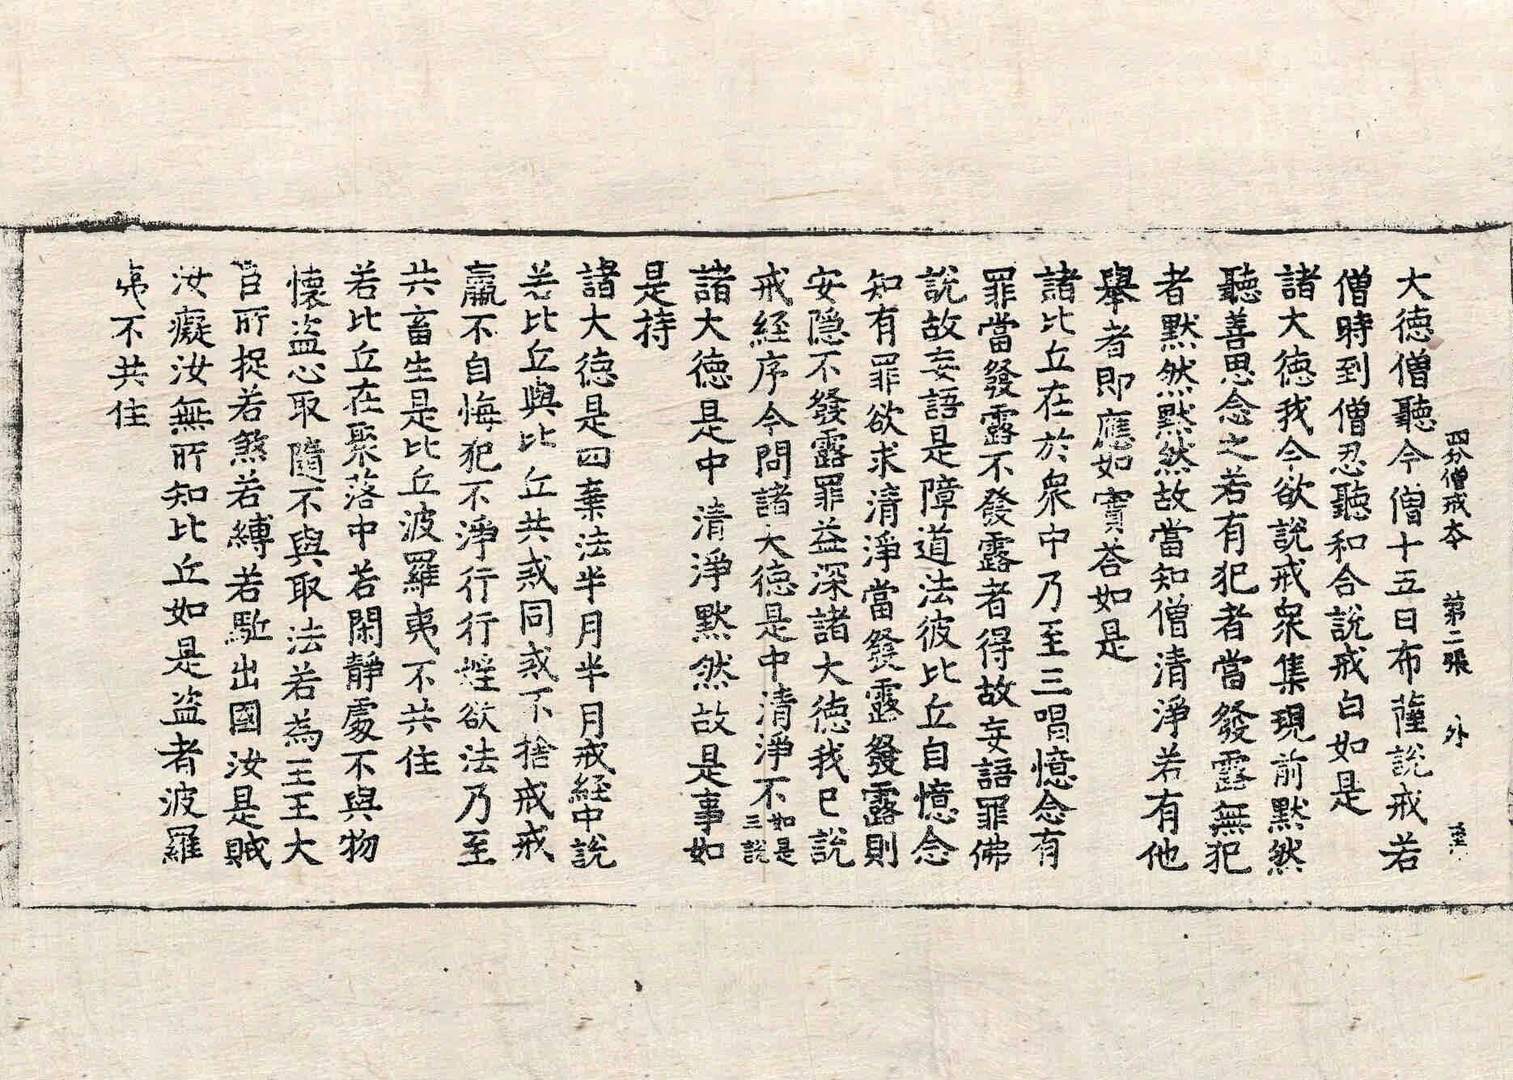 四分僧戒本 第二張 外
大德僧聽今僧十五日布薩說戒若
僧時到僧忍聽和合說戒白如是
諸大德我今欲說戒衆集現前默然
聽善思念之若有犯者當發露無犯
者默然默然故當知僧清淨若有他
舉者即應如實荅如是
諸比丘在於衆中乃至三唱憶念有
罪當發露不發露者得故妄語罪佛
說故妄語是障道法彼比丘自憶念
知有罪欲求清淨當發露發露則
安隱不發露罪益深諸大德我已說
戒經序今問諸大德是中清淨不如是三說
諸大德是中清淨默然故是事如
是持
諸大德是四棄法半月半月戒經中說
若比丘與比丘共戒同戒不捨戒戒
羸不自悔犯不淨行行婬欲法乃至
共畜生是比丘波羅夷不共住
若比丘在聚落中若閑靜處不與物
懷盜心取隨不與取法若為王王大
臣所捉若煞若縛若駈出國汝是賊
汝癡汝無所知比丘如是盜者波羅
夷不共住